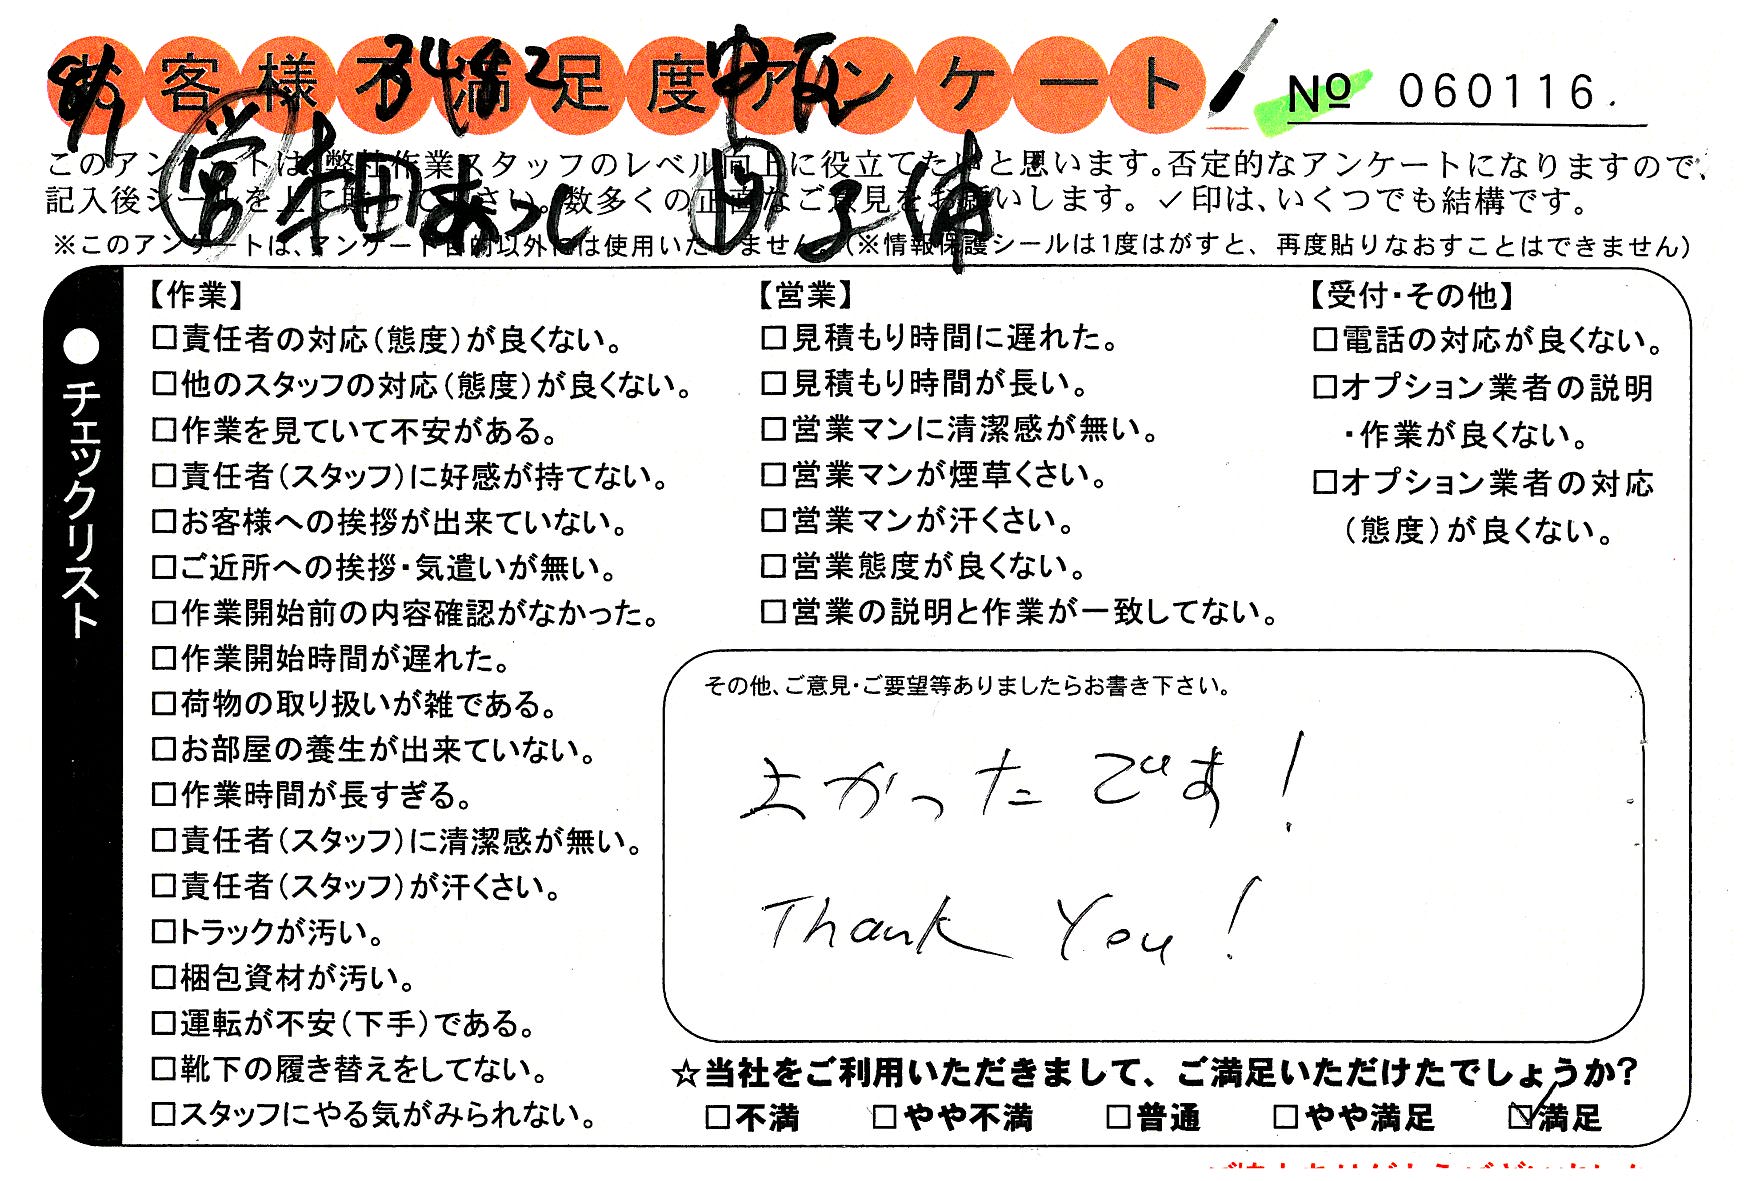 お客様不満足度アンケート
№ 060116.
8/1 3482 中阪
営 柚あつし 自 子浦
このアンケートは、弊社作業スタッフのレベル向上に役立てたいと思います。否定的なアンケートになりますので、
記入後シールを上に貼って下さい。数多くの正直なご意見をお願いします。✓印は、いくつでも結構です。
※このアンケートは、アンケート目的以外には使用いたしません。(※情報保護シールは1度はがすと、再度貼りなおすことはできません)
●チェックリスト
【作業】
□責任者の対応(態度)が良くない。
□他のスタッフの対応(態度)が良くない。
□作業を見ていて不安がある。
□責任者(スタッフ)に好感が持てない。
□お客様への挨拶が出来ていない。
□ご近所への挨拶・気遣いが無い。
□作業開始前の内容確認がなかった。
□作業開始時間が遅れた。
□荷物の取り扱いが雑である。
□お部屋の養生が出来ていない。
□作業時間が長すぎる。
□責任者(スタッフ)に清潔感が無い。
□責任者(スタッフ)が汗くさい。
□トラックが汚い。
□梱包資材が汚い。
□運転が不安(下手)である。
□靴下の履き替えをしてない。
□スタッフにやる気がみられない。
【営業】
□見積もり時間に遅れた。
□見積もり時間が長い。
□営業マンに清潔感が無い。
□営業マンが煙草くさい。
□営業マンが汗くさい。
□営業態度が良くない。
□営業の説明と作業が一致してない。
【受付・その他】
□電話の対応が良くない。
□オプション業者の説明
・作業が良くない。
□オプション業者の対応
(態度)が良くない。
その他、ご意見・ご要望等ありましたらお書き下さい。
よかったです!
Thank You!
☆当社をご利用いただきまして、ご満足いただけたでしょうか?
□不満 □やや不満 □普通 □やや満足 ☑満足